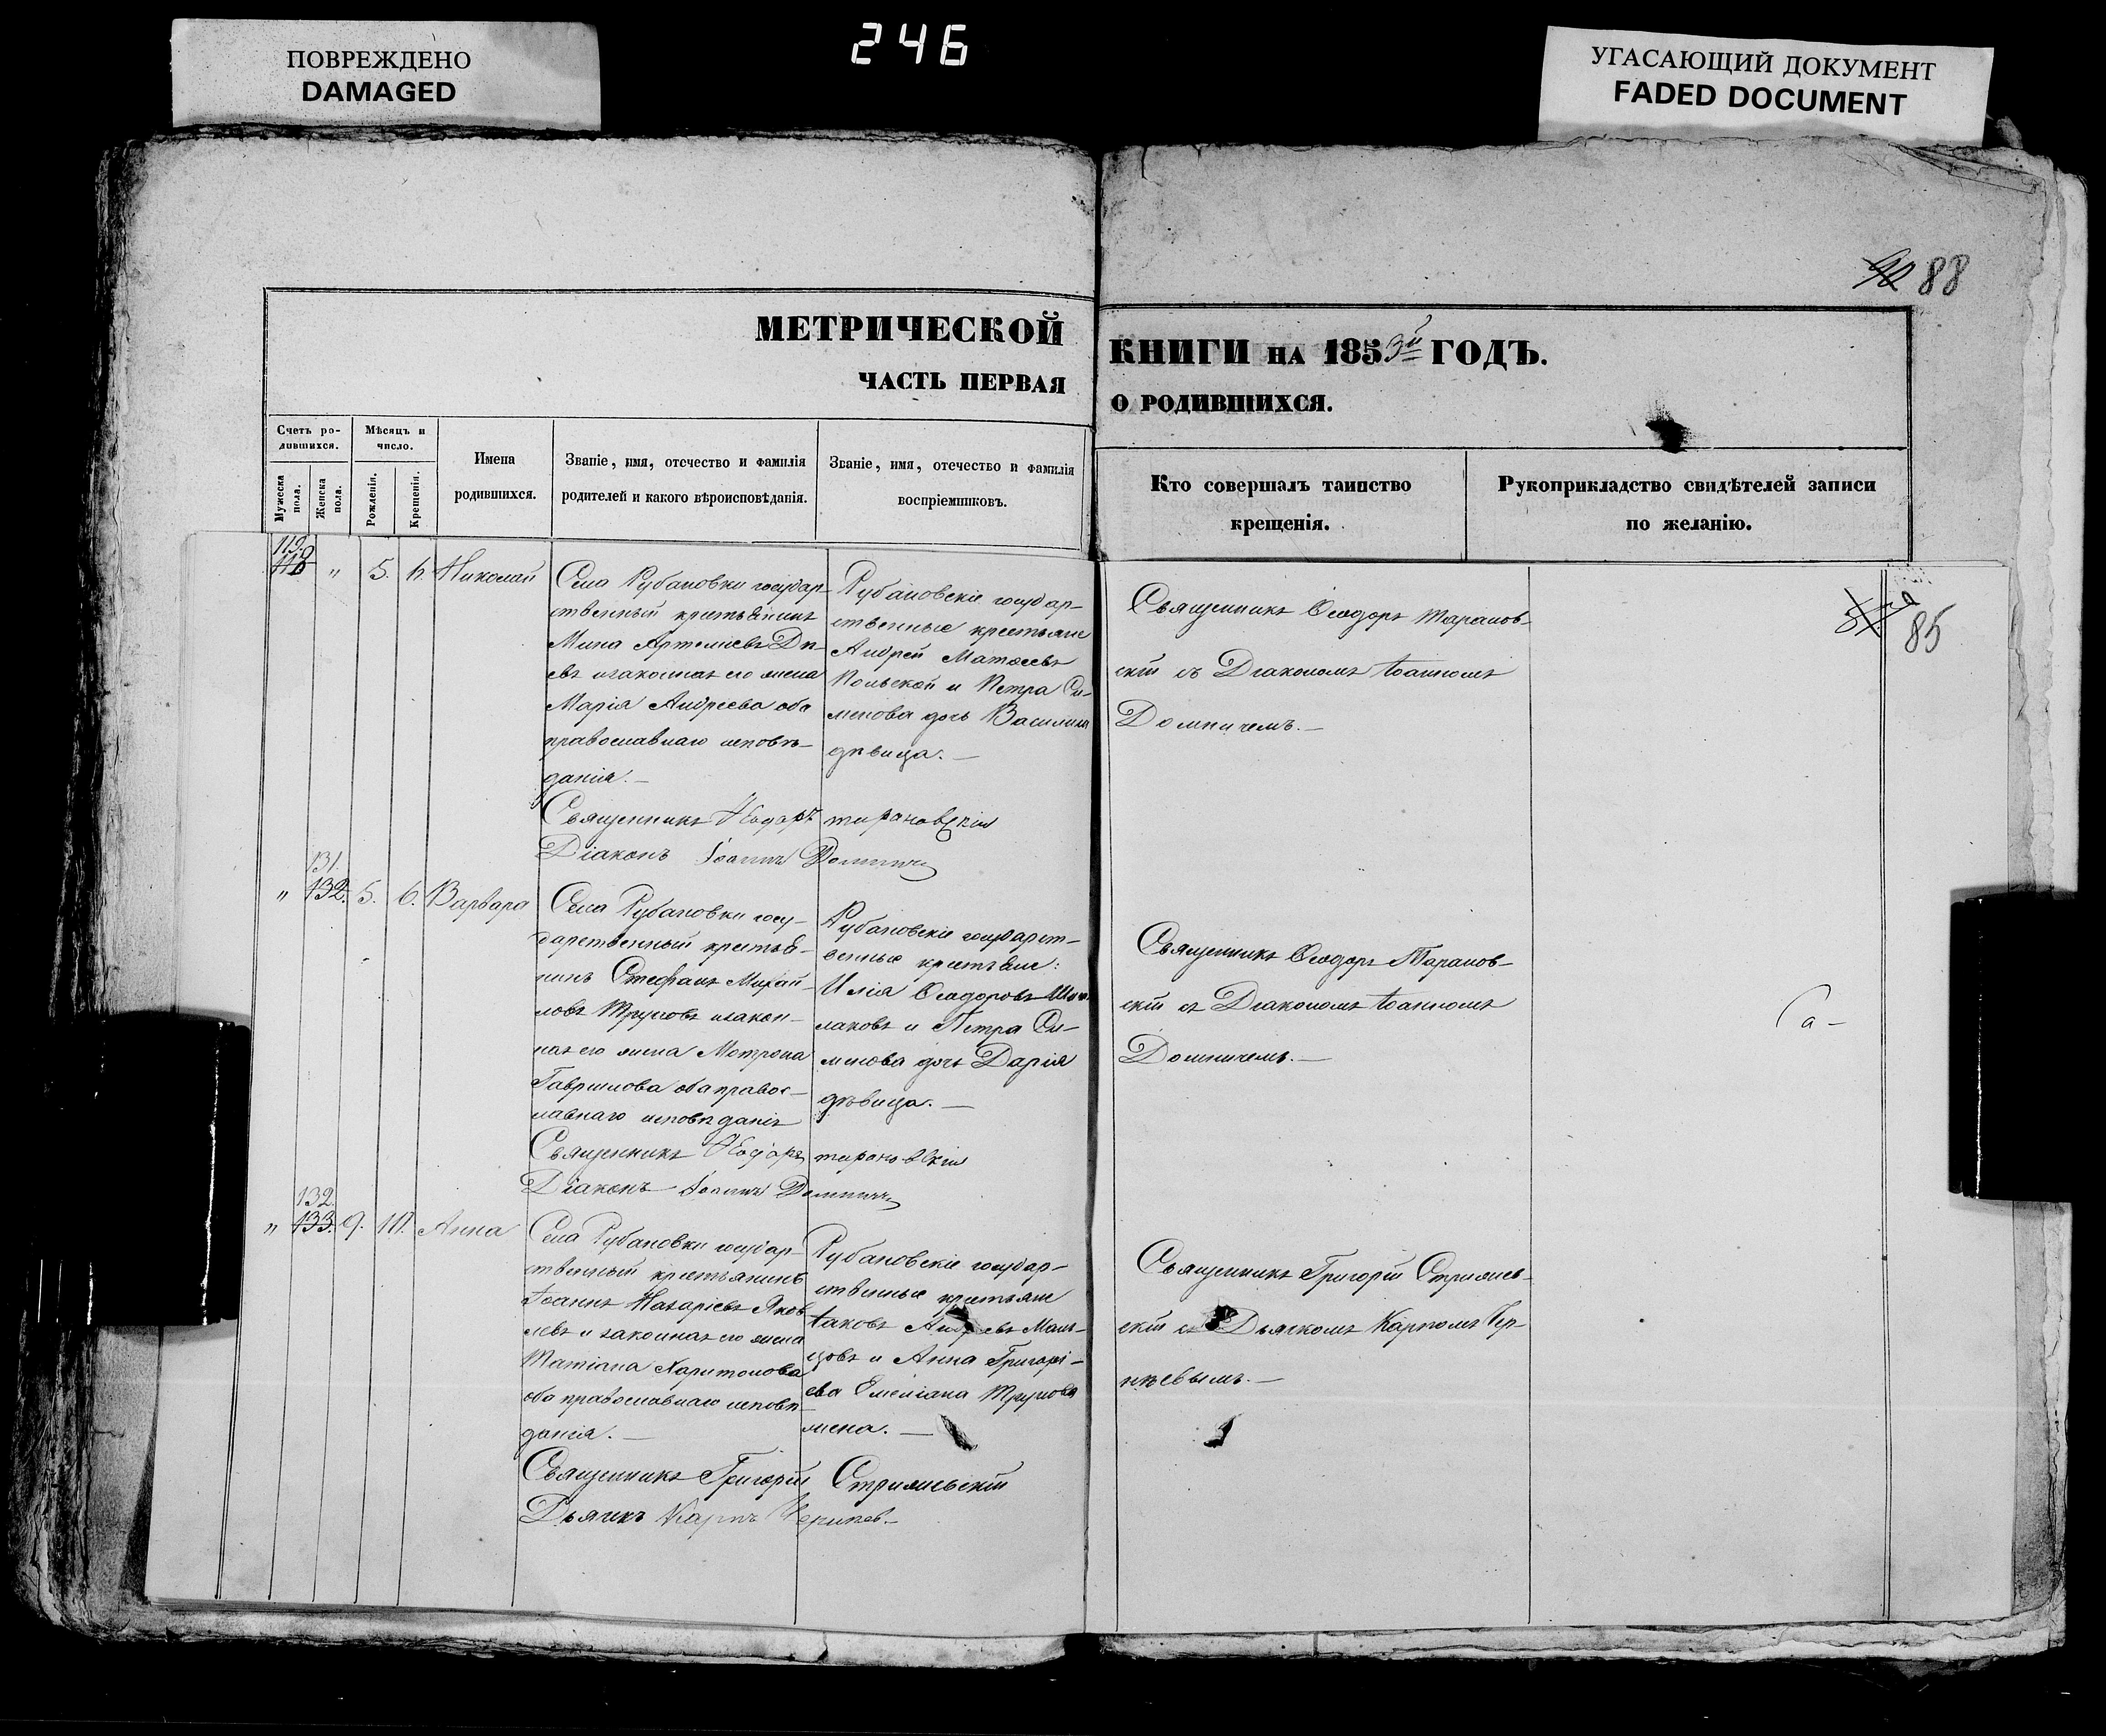 ПОВРЕЖДЕНО
DAMAGED
246
УГАСАЮЩИЙ ДОКУМЕНТ
FADED DOCUMENT
88
МЕТРИЧЕСКОЙ
ЧАСТЬ ПЕРВАЯ
КНИГИ НА 1853й ГОДЪ.
О РОДИВШИХСЯ.
Счетъ ро-
дившихся.
Мужеска пола.
Женска пола.
Мѣсяцъ и
число.
Рожденія.
Крещенія.
Имена
родившихся.
Званіе, имя, отечество и фамилія
родителей и какого вѣроисповѣданія.
Званіе, имя, отечество и фамилія
воспріемниковъ.
Кто совершалъ таинство
крещенія.
Рукоприкладство свидѣтелей записи
по желанію.
112.
" 5. 6. Николай
Села Рубановки государ-
ственный крестьянинъ
Мина Артеміевъ
евъ изаконная его жена
Марія Андреева оба
православнаго исповѣ-
данія.—
Священникъ Ѳеодоръ Тарановскій
Діаконъ Іоаннъ Домничъ
Рубановскіе государ-
ственные крестьяне
Андрей Матѳеевъ
Польской и Петра Си-
менова дочь Василиса
дѣвица.—
Священникъ Ѳеодоръ Таранов-
скій съ Діакономъ Іоанномъ
Домничемъ.—
85
131.
" 132. 5. 6. Варвара
Села Рубановки госу-
дарственный крестья-
нинъ Стефанъ Михай-
ловъ Труновъ изакон-
ная его жена Мотрона
Гаврилова оба правос-
лавнаго исповѣданія
Священникъ Ѳеодоръ Тарановскій
Діаконъ Іоаннъ Домничъ
Рубановскіе государст-
венные крестьяне:
Илія Ѳеодоровъ
лаковъ и Петра Си-
менова дочь Дарія
дѣвица.—
Священникъ Ѳеодоръ Таранов-
скій съ Діакономъ Іоанномъ
Домничемъ.—
132.
" 133. 9. 10. Анна
Села Рубановки государ-
ственный крестьянинъ
Іоаннъ Назаріевъ Яков-
левъ и законная его жена
Татіана Харитонова
оба православнаго исповѣ-
данія.—
Священникъ Григорій Стрилевскій
Дьячекъ Карпъ
Рубановскіе государ-
ственные крестьяне
Іаковъ Андреевъ Маль-
цовъ и Анна Григорі-
ева Емеліана Трунова
жена.—
Священникъ Григорій Стрилев-
скій съ Дьячкомъ Карпомъ